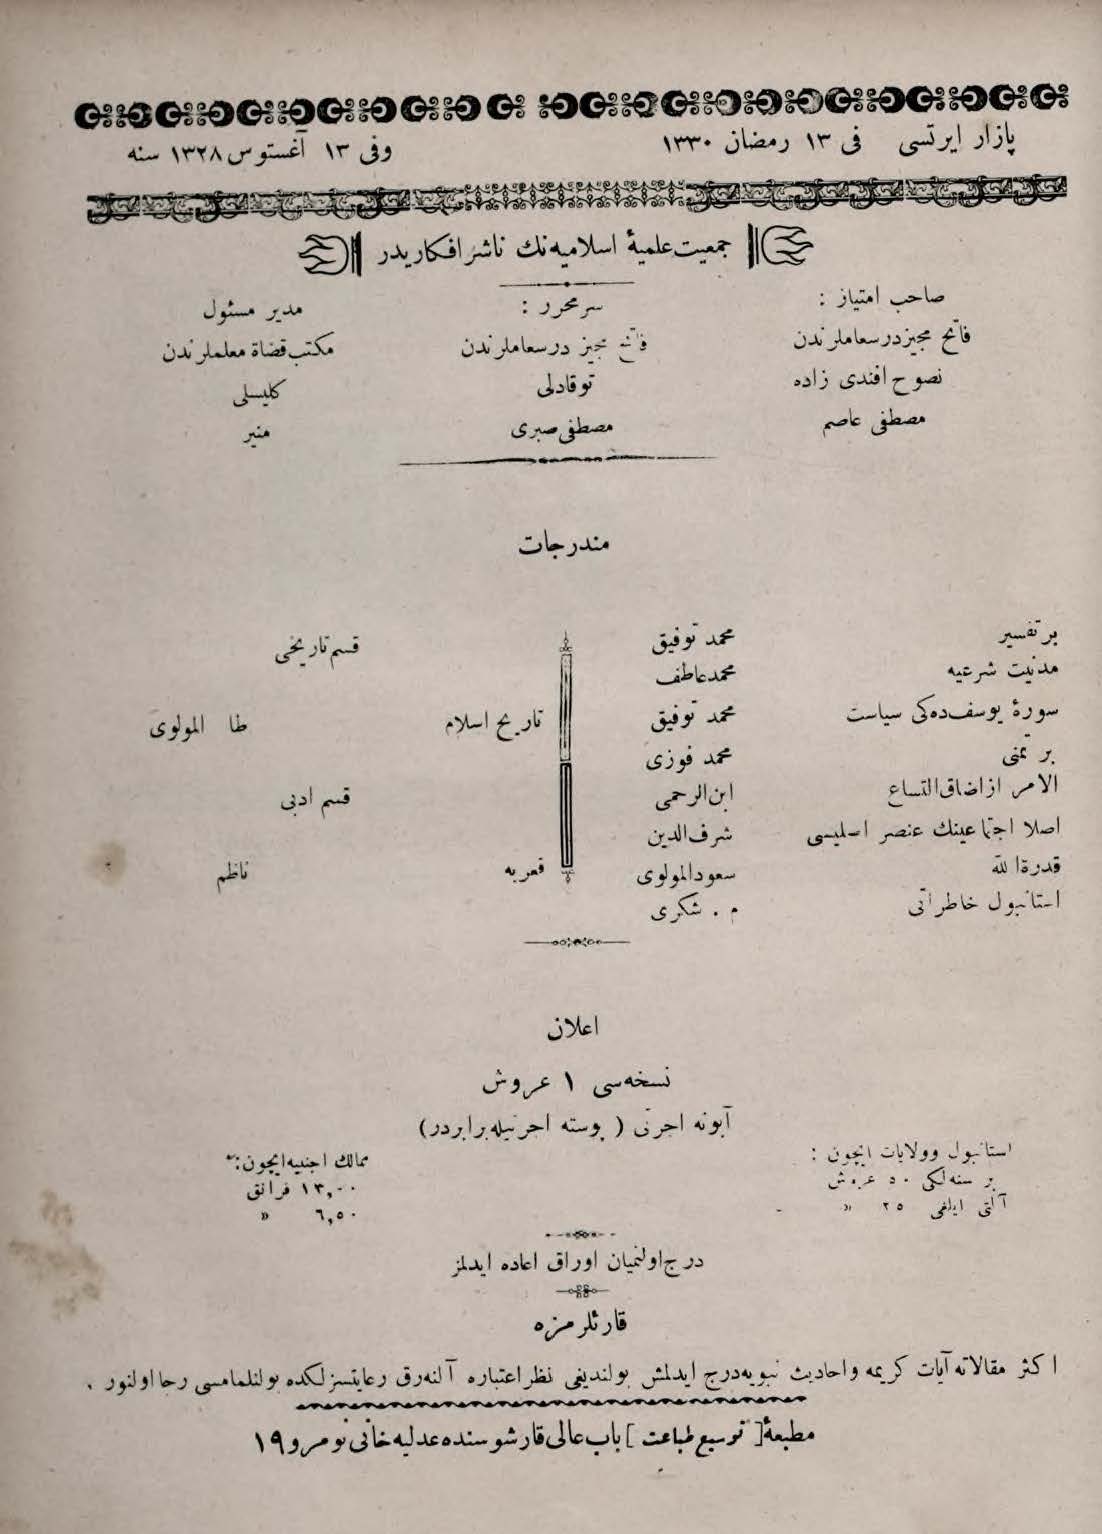 پازار ایرتسی فی ١٣ رمضان ١٣٣٠
وفی ١٣ آغستوس ١٣٢٨ سنه
جمعیت علمیهٔ اسلامیه‌نك ناشر افکاریدر
صاحب امتیاز :
فاتح مجیز درسعاملرندن
نصوح افندی زاده
مصطفی عاصم
سر محرر :
فاتح مجیز درسعاملرندن
توقادلی
مصطفی صبری
مدیر مسئول
مکتب قضاة معلملرندن
کلیسلی
منیر
مندرجات
بر تفسیر محمد توفیق
مدنیت شرعیه محمد عاطف
سورۀ یوسف‌ده‌کی سیاست محمد توفیق
بر تمنی محمد فوزی
الامر اذاضاق التساع ابن الرحمی
اصلا اجتماعینك عنصر اصلیسی شرف الدین
قدرة الله سعود المولوی
استانبول خاطراتی م . شکری
قسم تاریخی
تاریخ اسلام طا المولوی
قسم ادبی
ناظم
اعلان
نسخه‌سی ١ غروش
آبونه اجرتی ( پوسته اجرتیله برابردر )
استانبول وولایات ایچون :
بر سنه‌لکی ٥٠ غروش
آلتی ایلغی ٢٥ »
ممالك اجنبیه ایچون :
١٣,٠٠ فرانق
٦,٥٠ »
درج اولنمیان اوراق اعاده ایدلمز
قارئلرمزه
اکثر مقالاته آیات کریمه واحادیث نبویه درج ایدلمش بولندیغی نظر اعتباره آلنه‌رق رعایتسزلکده بولنلمامسی رجا اولنور .
مطبعۀ [ توسیع طباعت ] باب عالی قارشوسنده عدلیه خانی نومرو ١٩